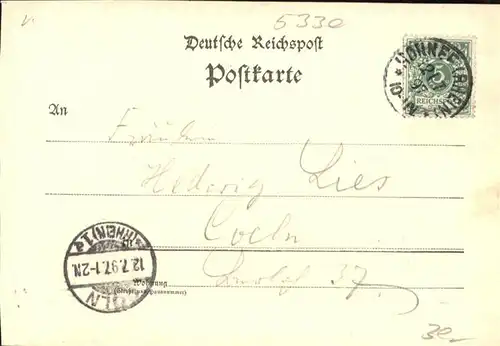 5330
Deutsche Reichspost
Postkarte
HONNEF (RHEIN)
5
REICHSP
An
Fräulein
Hedwig Lies
Coeln
37.
(RHEIN) 1
12.7.97.1-2N.
CÖLN
Wohnung
(Straße und Hausnummer)